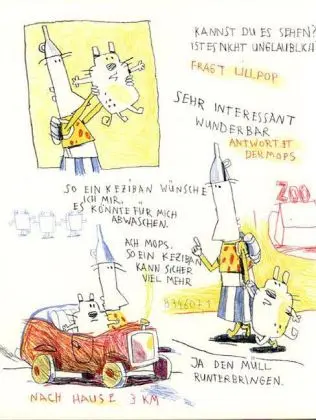 KANNST DU ES SEHEN?
IST ES NICHT UNGLAUBLICH
FRAGT LILLPOP
SEHR INTERESSANT
WUNDERBAR
ANTWORTET
DER MOPS
SO EIN KEZIBAN WÜNSCHE
ICH MIR,
ES KÖNNTE FÜR MICH
ABWASCHEN.
ACH MOPS.
SO EIN KEZIBAN
KANN SICHER
VIEL MEHR
ZOO
JA DEN MÜLL
RUNTERBRINGEN.
NACH HAUSE 3 KM